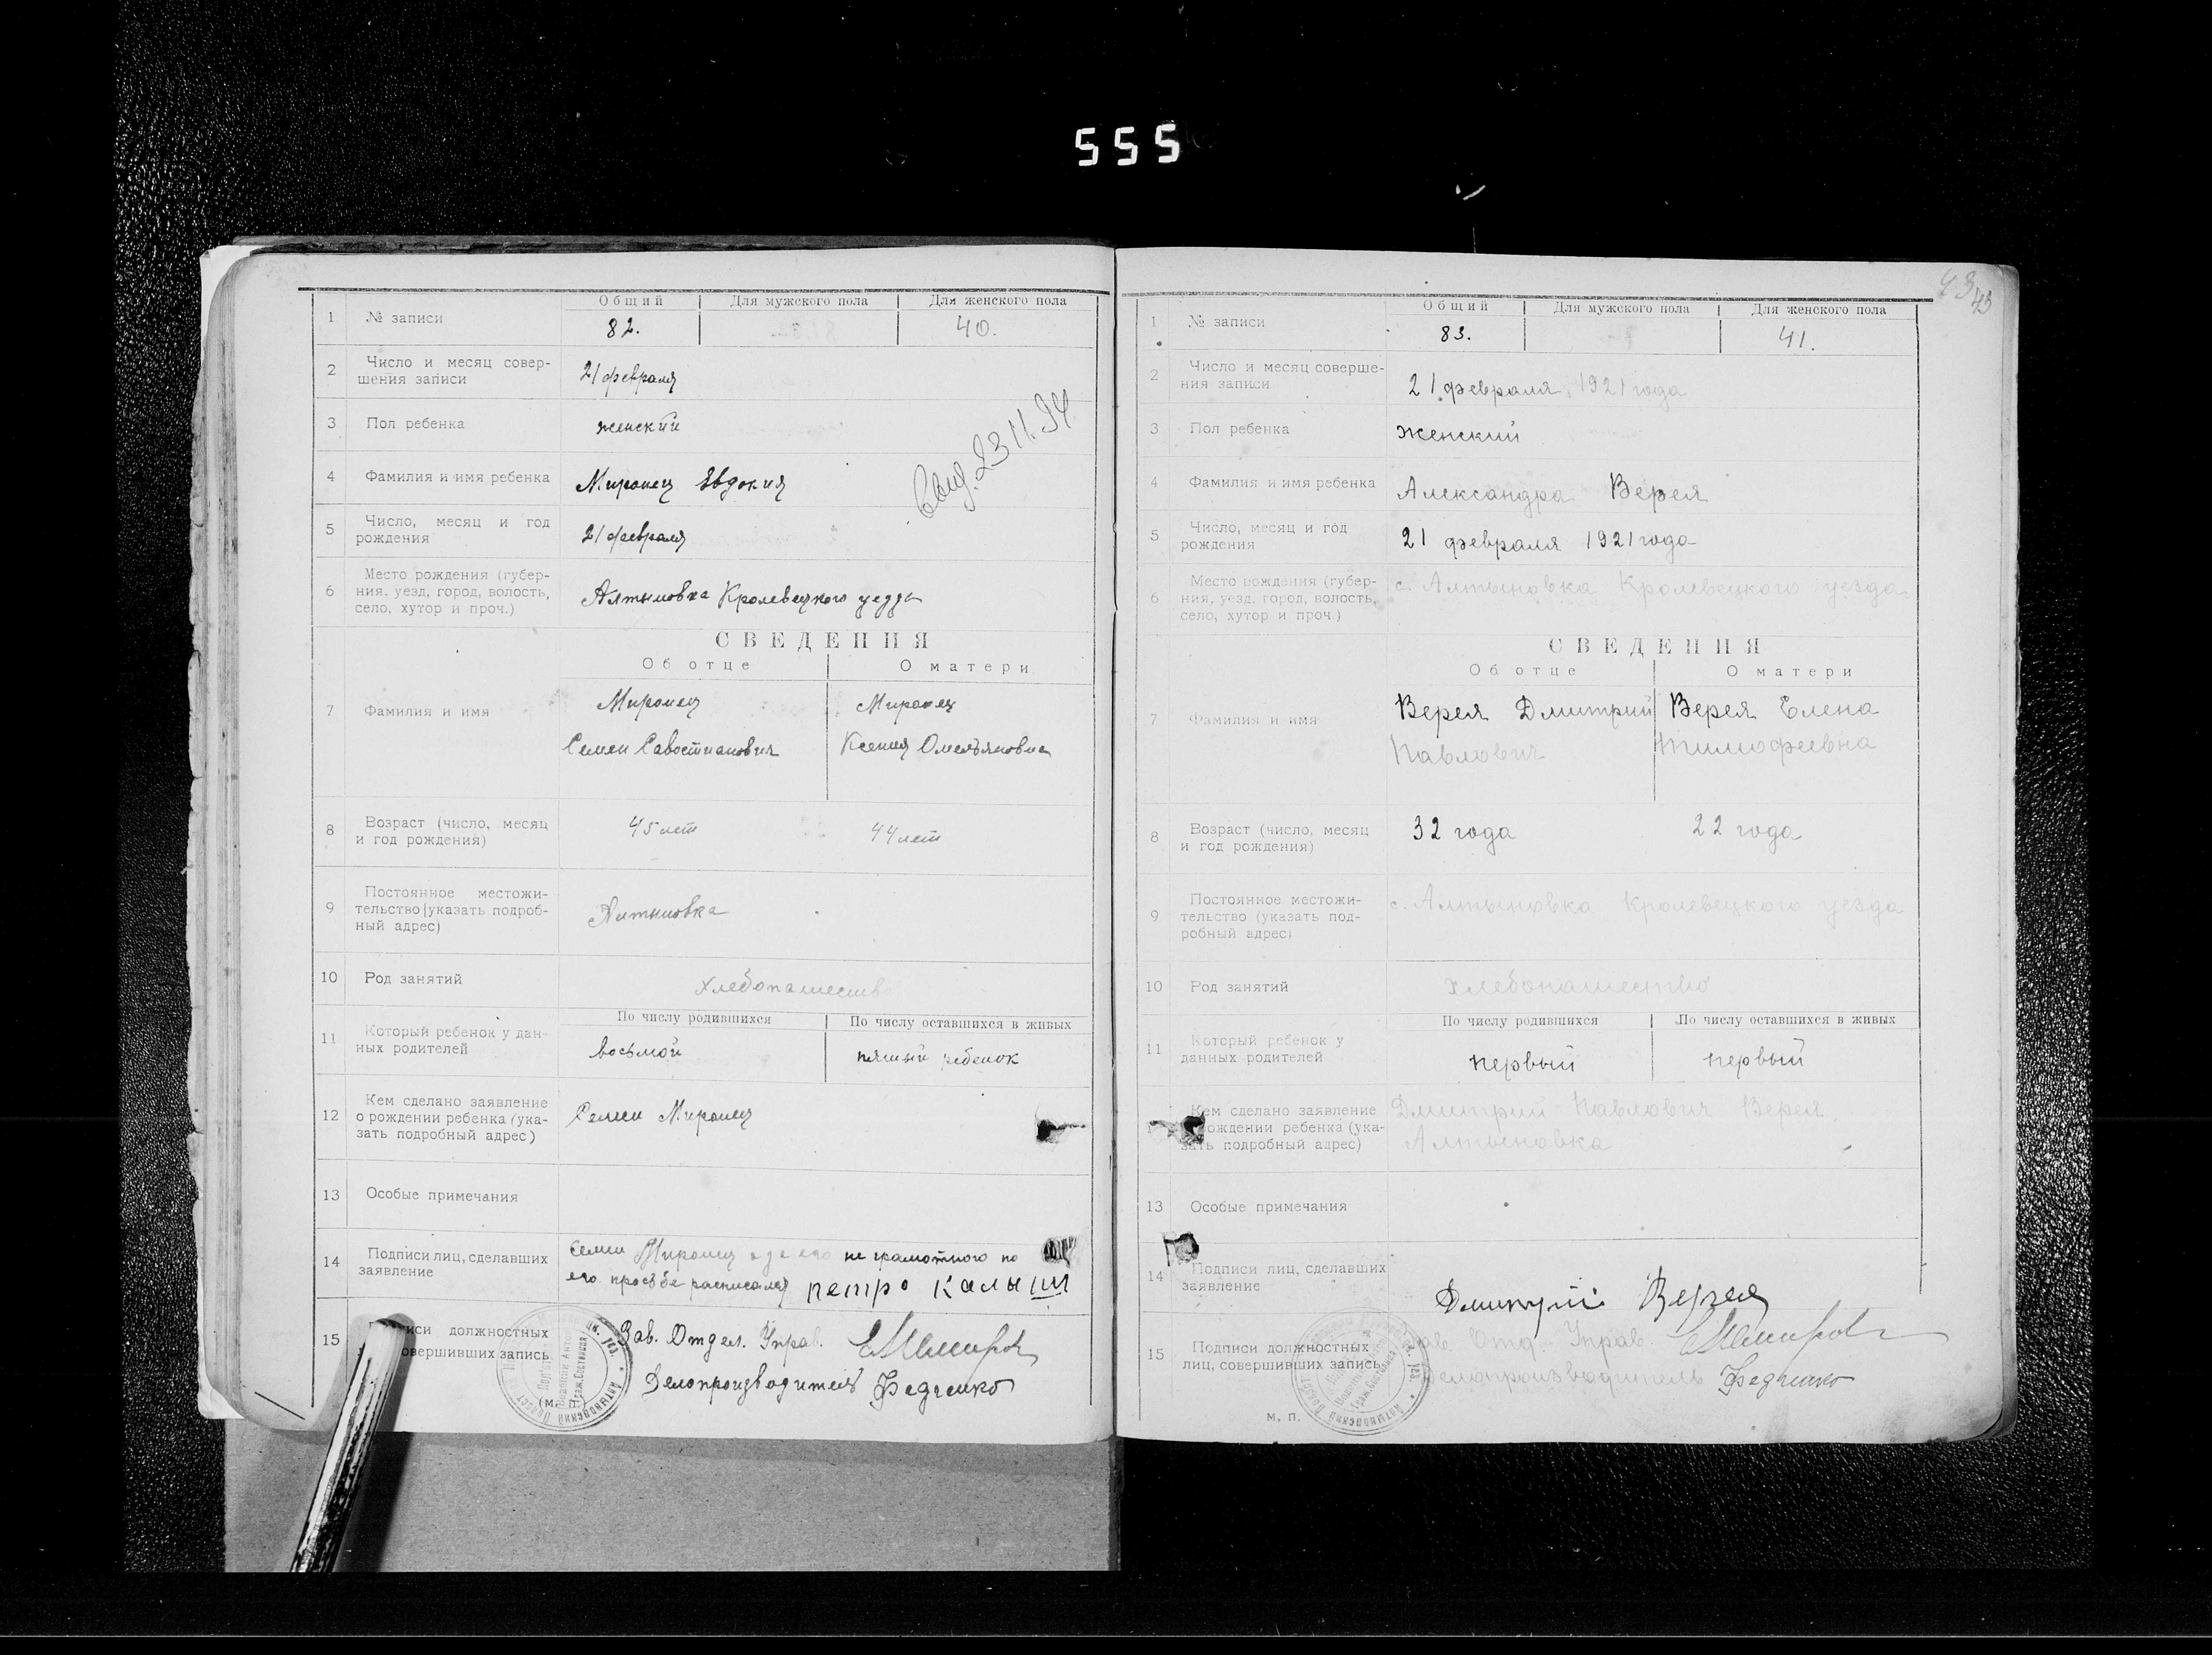 555
1 № записи
Общий Для мужского пола Для женского пола
82. 40.
2 Число и месяц совер-
шения записи
21 февраля
3 Пол ребенка
женский
Свид. 23 11.34
4 Фамилия и имя ребенка
Миронец Євдокия
5 Число, месяц и год
рождения
21 февраля
6 Место рождения (губер-
ния, уезд, город, волость,
село, хутор и проч.)
Алтыновка Кролевецкого уезда
СВЕДЕНИЯ
Об отце О матери
7 Фамилия и имя
Миронец Миронец
Семен Савостианович Ксения Омельяновна
8 Возраст (число, месяц
и год рождения)
45 лет 44 лет
9 Постоянное местожи-
тельство (указать подроб-
ный адрес)
Алтыновка
10 Род занятий
хлебопашество
11 Который ребенок у дан-
ных родителей
По числу родившихся По числу оставшихся в живых
восьмой пятый ребенок
12 Кем сделано заявление
о рождении ребенка (ука-
зать подробный адрес)
Семен Миронец
13 Особые примечания
14 Подписи лиц, сделавших
заявление
Семен Миронец а за его не грамотного по
его просьбе расписался петро калыш
15 должностных
овершивших запись.
(м. п.)
Зав. Отдел. Управ.
Делопроизводитель Федченко
43
43
1 № записи
Общий Для мужского пола Для женского пола
83. 41.
2 Число и месяц соверше-
ния записи
21 февраля, 1921 года
3 Пол ребенка
женский
4 Фамилия и имя ребенка
Александра Верея
5 Число, месяц и год
рождения
21 февраля 1921 года
6 Место рождения (губер-
ния, уезд, город, волость,
село, хутор и проч.)
с. Алтыновка Кролевецкого уезда.
СВЕДЕНИЯ
Об отце О матери
7 Фамилия и имя
Верея Дмитрий Верея Елена
Павлович Тимофеевна
8 Возраст (число, месяц
и год рождения)
32 года 22 года
9 Постоянное местожи-
тельство (указать под-
робный адрес)
с. Алтыновка Кролевецкого уезда
10 Род занятий
хлебопашество
11 Который ребенок у
данных родителей
По числу родившихся По числу оставшихся в живых
первый первый
Кем сделано заявление
рождении ребенка (ука-
зать подробный адрес)
Дмитрий Павлович Верея
Алтыновка
13 Особые примечания
14 Подписи лиц, сделавших
заявление
Дмитрий Верея
15 Подписи должностных
лиц, совершивших запись
м. п.
Зав. Отд. Управ.
Делопроизводитель Федченко